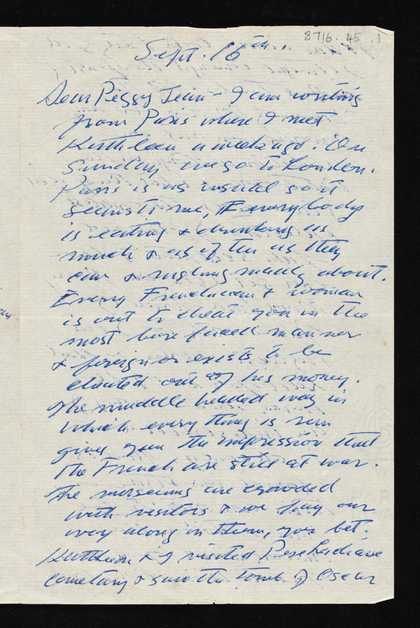 8716.45 1
Sept. 16th..
Dear Peggy Jean - I am writing
from Paris where I met
Kathleen a week ago. On
Sunday we go to London.
Paris is as usual so it
seems to me, Everybody
is eating & drinking as
much & as often as they
can & rushing madly about.
Every Frenchman & woman
is out to cheat you in the
most bare faced manner
& foreigners exists to be
cheated out of his money.
The muddle headed way in
which every thing is run
gives you the impression that
the French are still at war.
The museums are crowded
with visitors & we pay our
way along in them, you bet.
Kathleen & I visited Pere Lachaise
cemetary & saw the tomb of Oscar